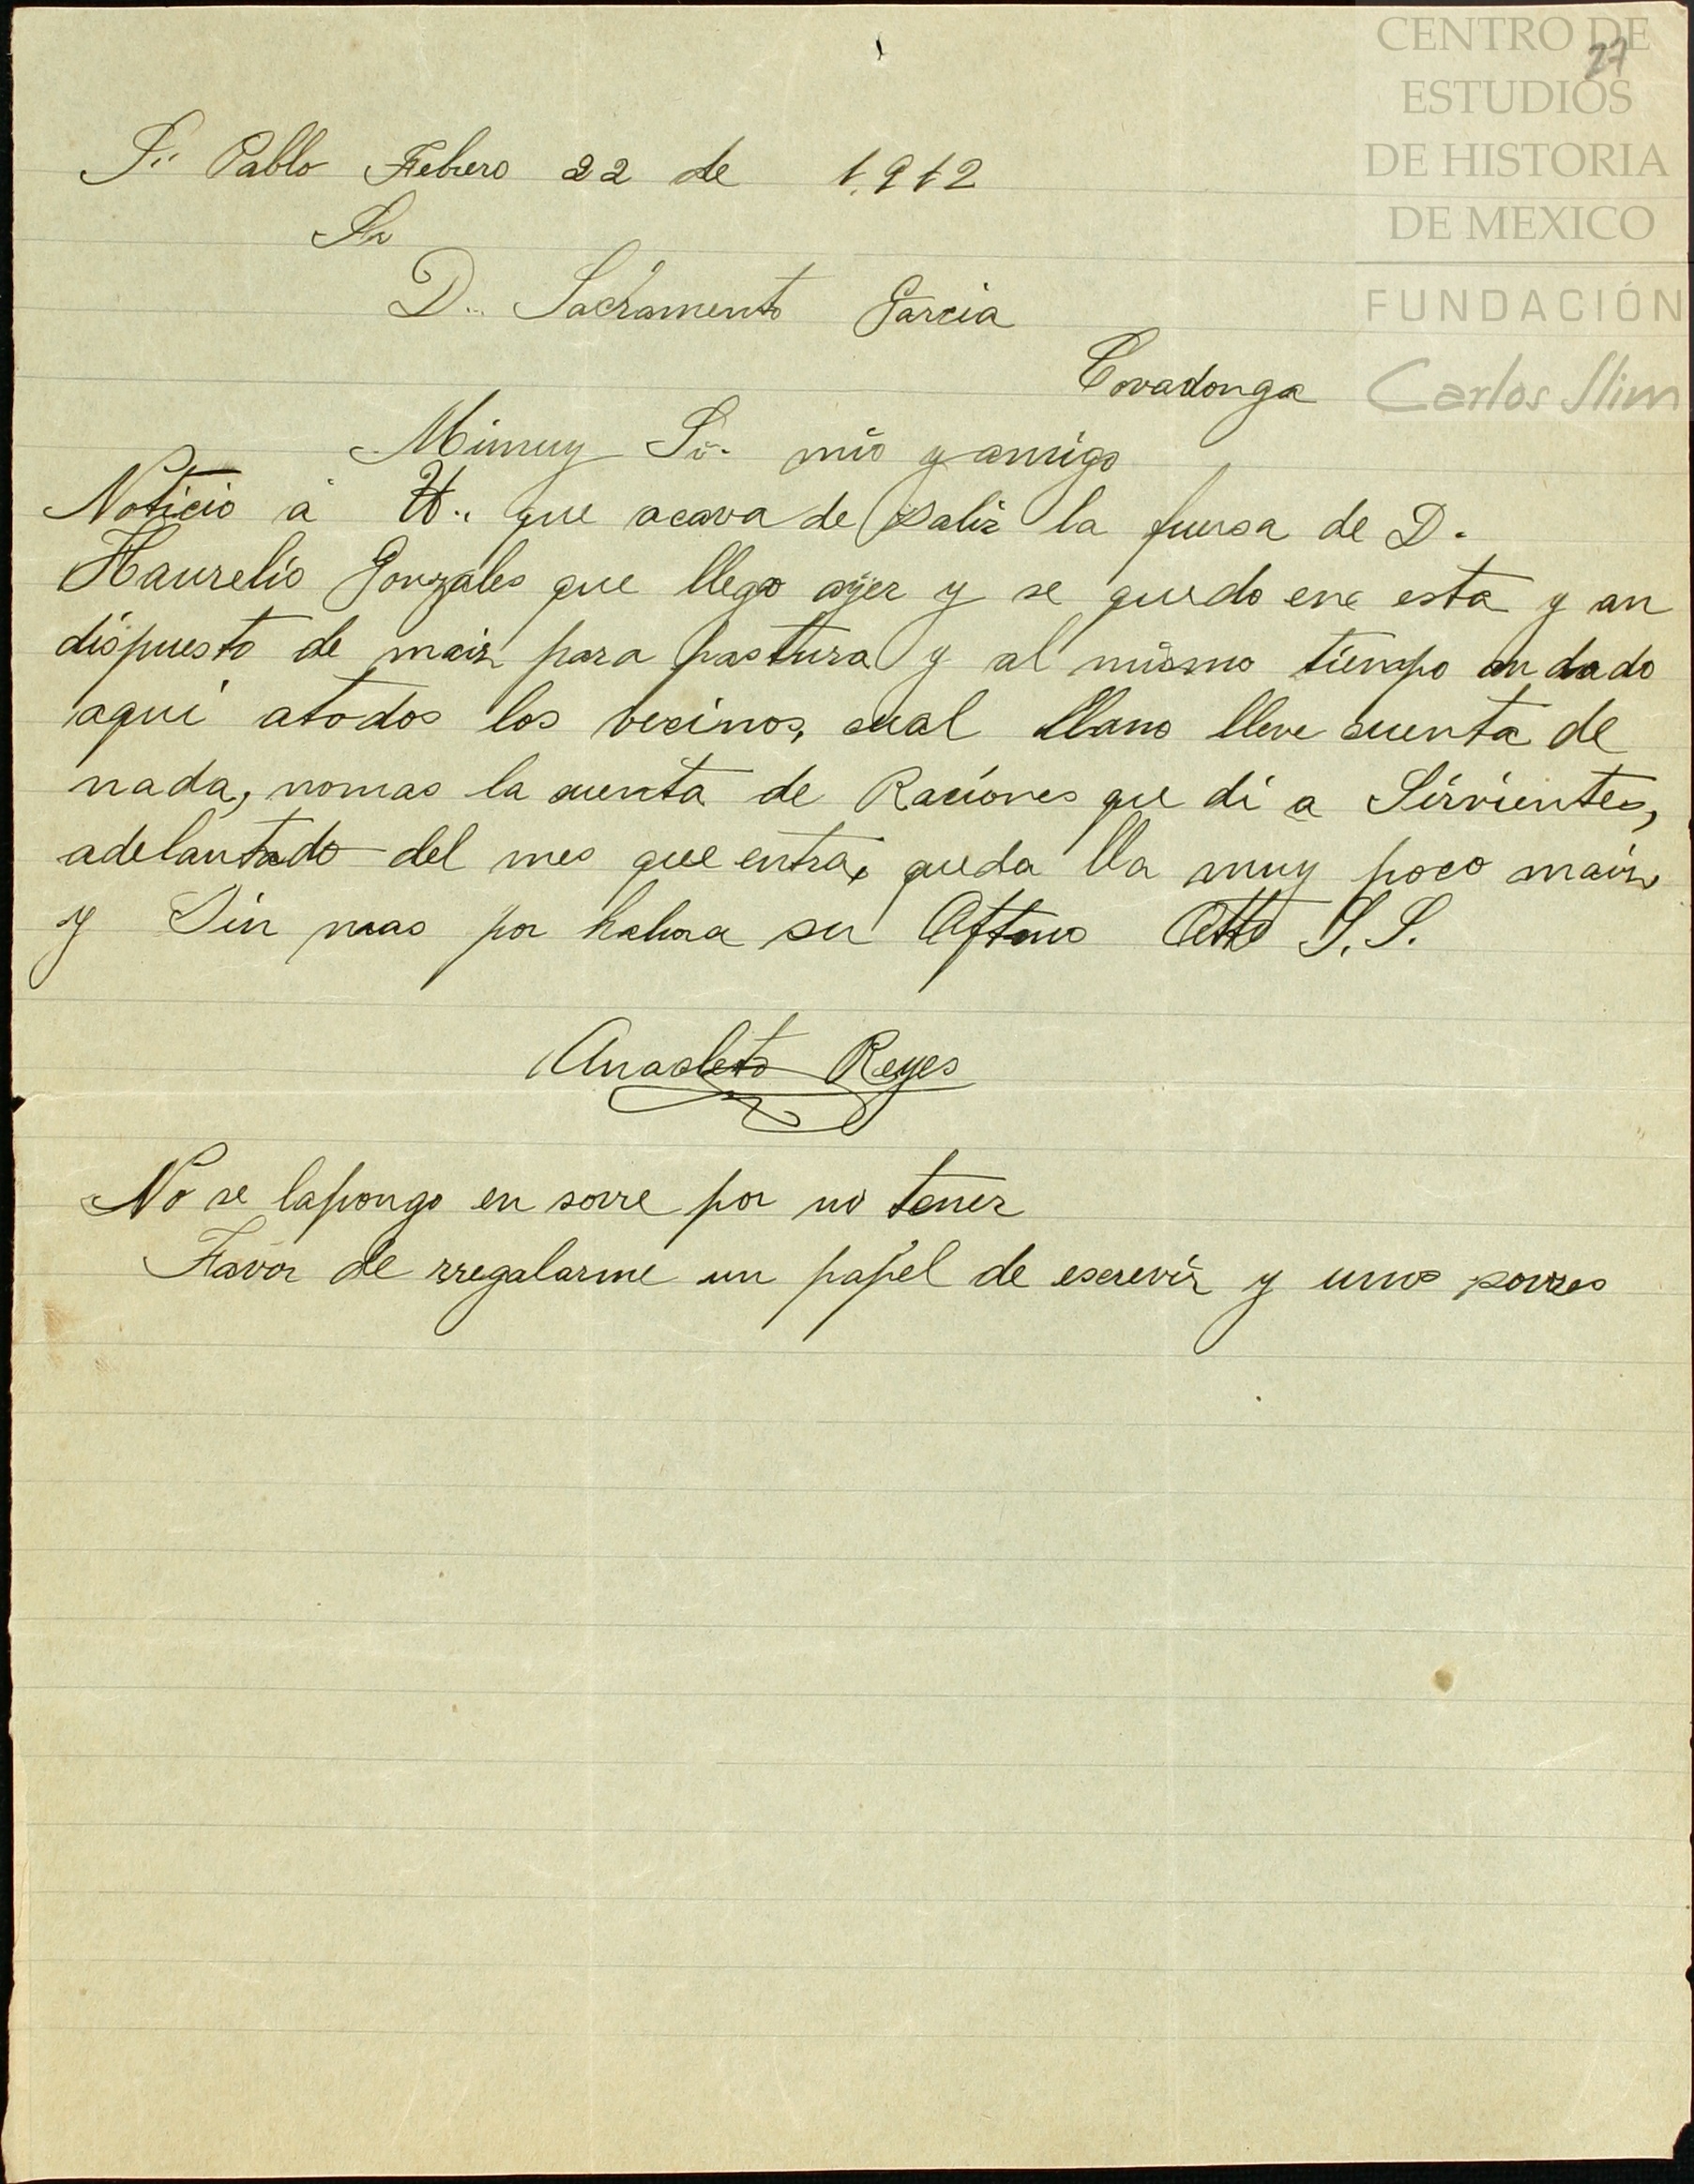 CENTRO DE
ESTUDIOS
DE HISTORIA
DE MEXICO
FUNDACIÓN
Carlos Slim
27
Sn. Pablo Febrero 22 de 1912
Sr
D. Sacramento Garcia
Covadonga
Mimuy Sr. mio y amigo
Noticio á U. que acava de Salir la fuersa de D.
Haurelio Gonzales que llego ayer y se quedo ene esta y an
dispuesto de mais para pastura y al mismo tiempo an dado
aqui atodos los vecinos, cual llano lleve cuenta de
nada, nomas la cuenta de Raciones que di a Sirvientes,
adelantado del mes que entra, queda lla muy poco mais,
y Sin mas por hahora su Aftmo Atto S. S.
Anacleto Reyes
No se lapongo en sovre por no tener
Favor de rregalarme un papel de escrevir y unos sovres